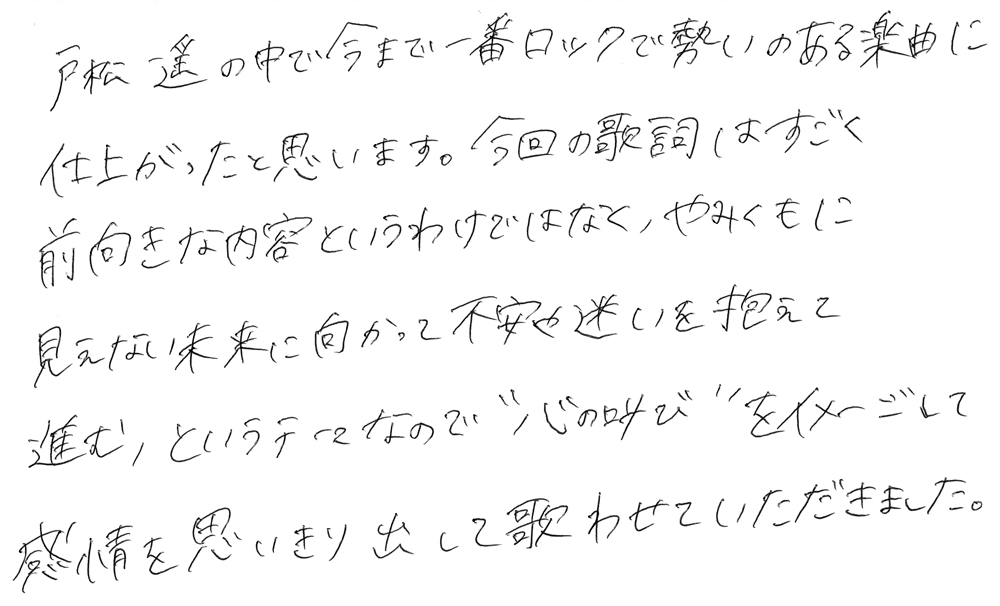 戸松 遥の中で今まで一番ロックで勢いのある楽曲に
仕上がったと思います。今回の歌詞はすごく
前向きな内容というわけではなく、やみくもに
見えない未来に向かって不安や迷いを抱えて
進む、というテーマなので"心の叫び"をイメージして
感情を思いきり出して歌わせていただきました。